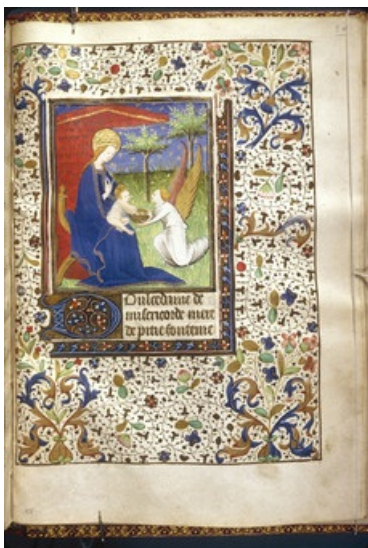 Doulce dame de
misericorde mere
de pitie fonteine